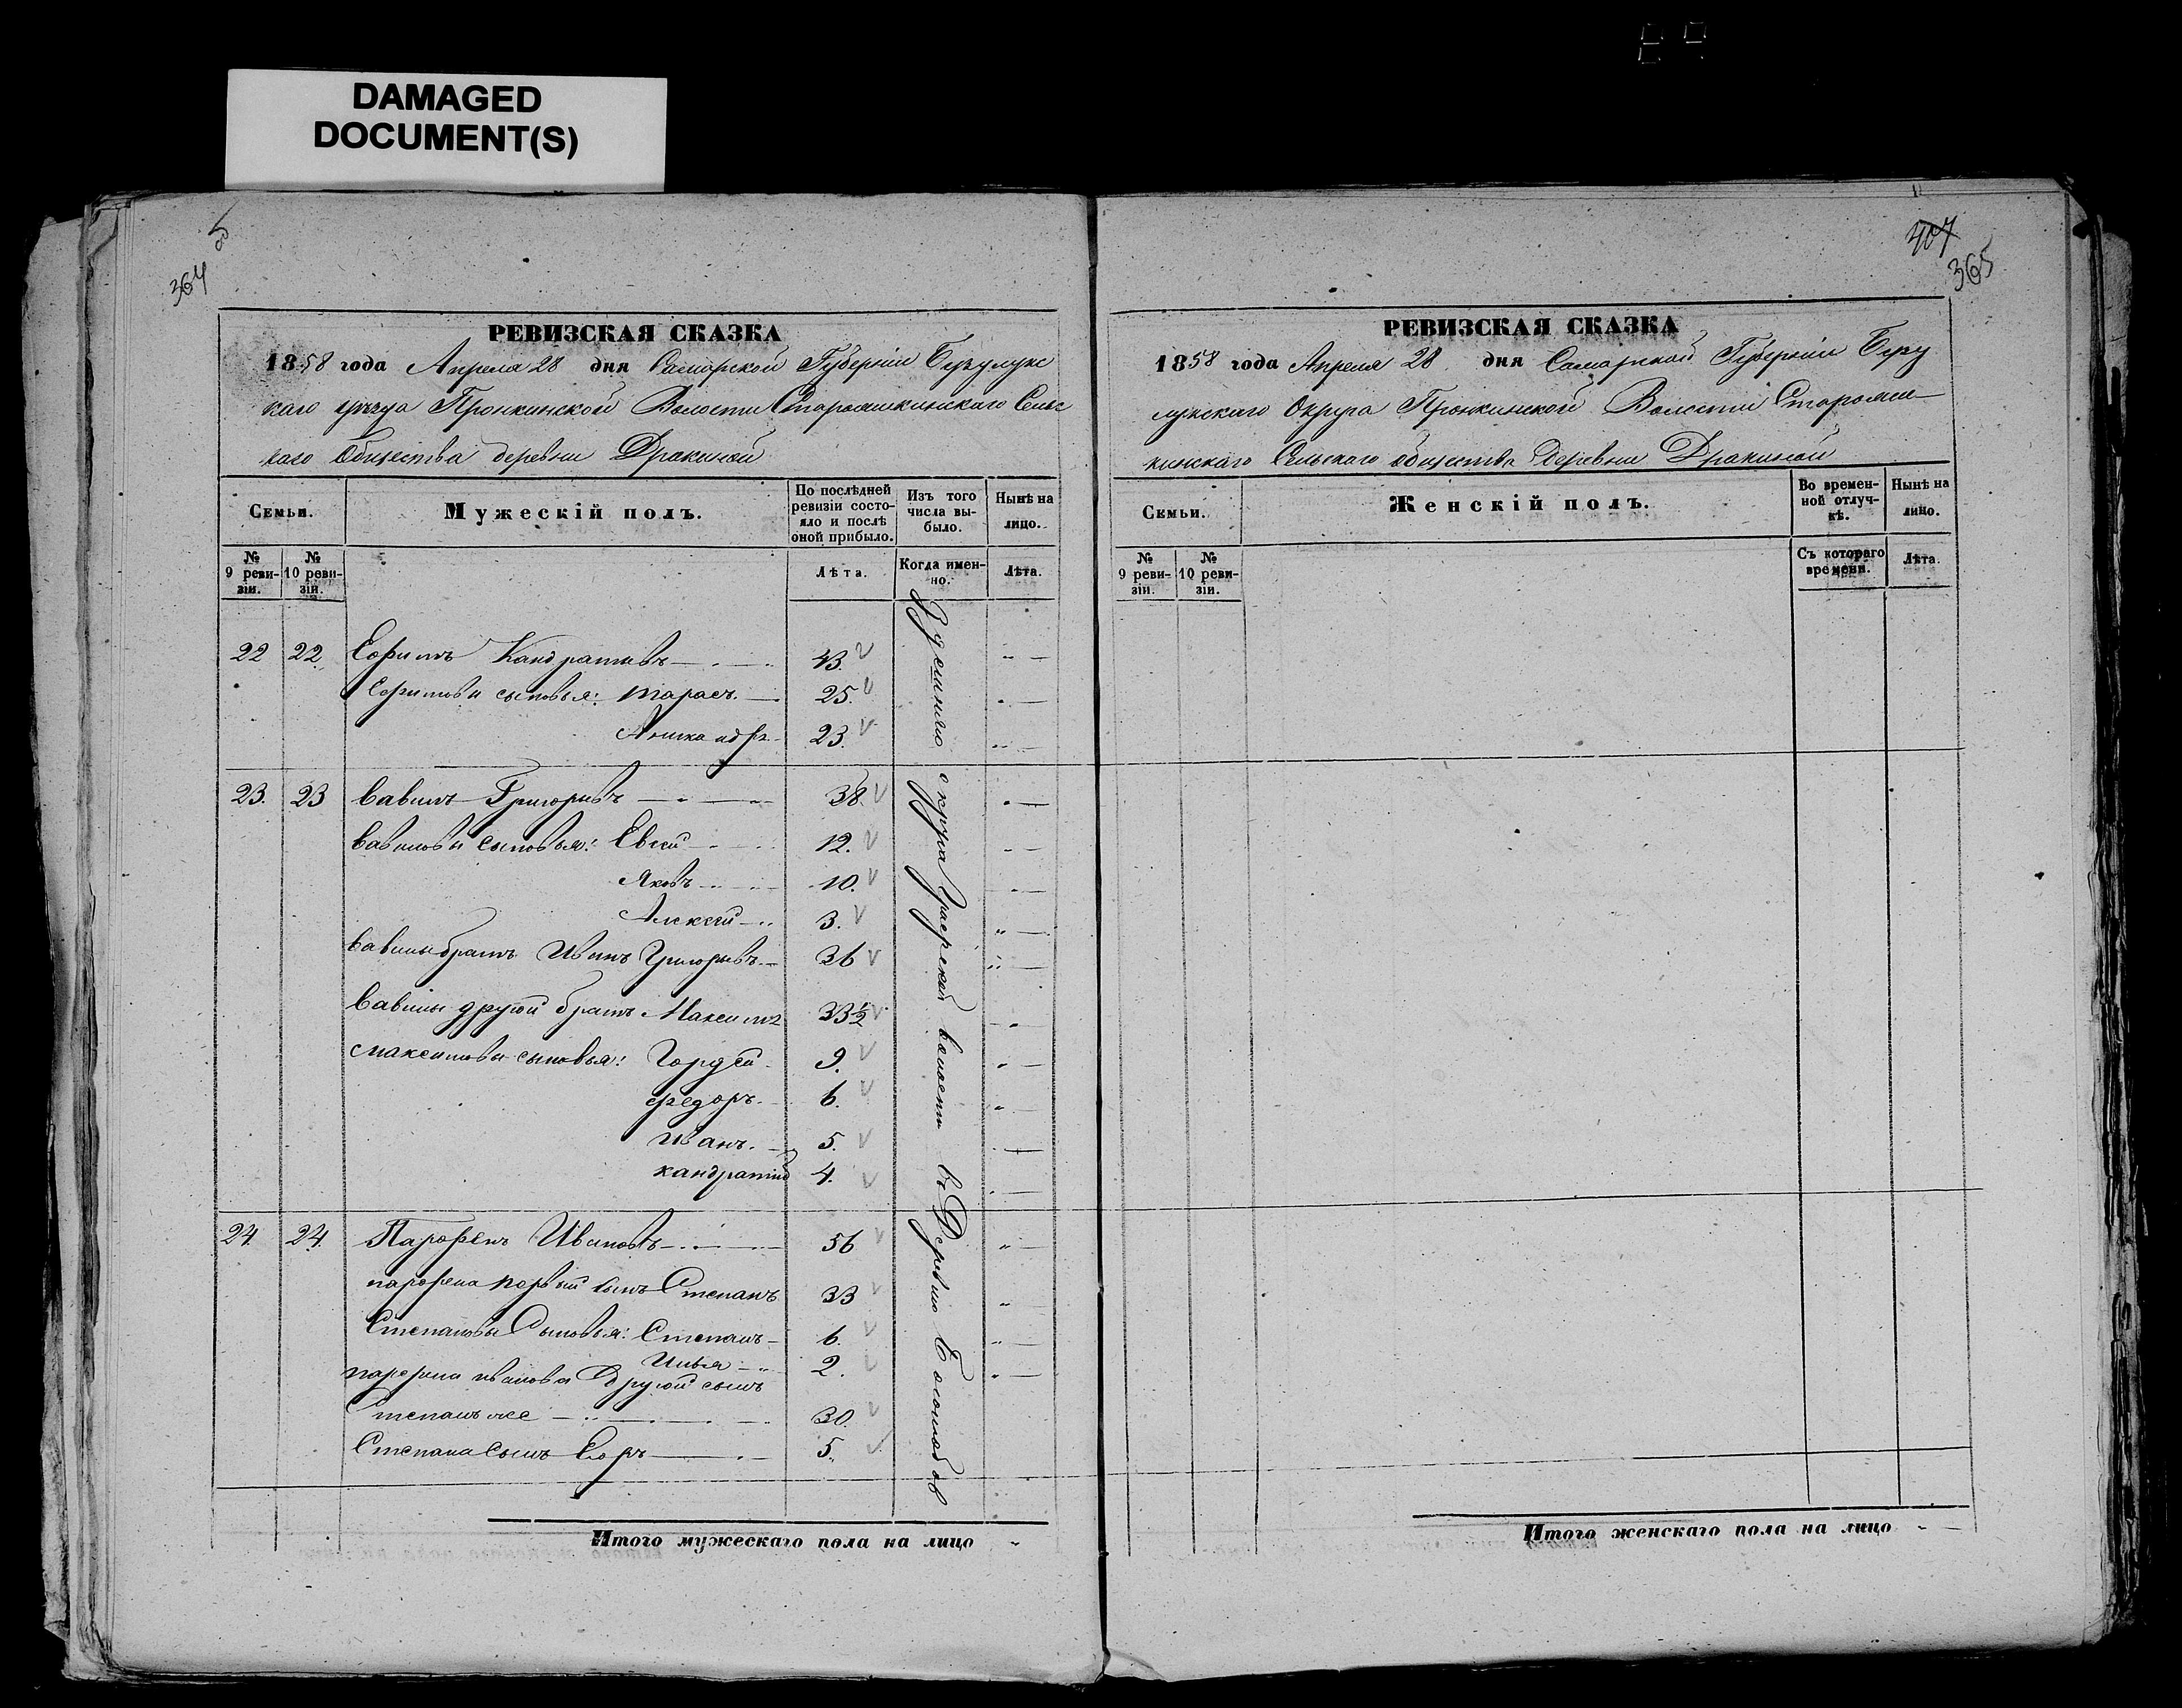 DAMAGED
DOCUMENT(S)
5
364
РЕВИЗСКАЯ СКАЗКА
1858 года Апреля 28 дня Самарской Губерніи Бузулукс
каго уѣзда Пронкинской Волости Старомикинскаго Сельс
каго Общества деревни Дракиной
Семьи.
Мужескій полъ.
По послѣдней ревизіи состояло и послѣ оной прибыло.
Изъ того числа выбыло.
Нынѣ на лицо.
№ 9 ревизіи.
№ 10 ревизіи.
Лѣта.
Когда именно.
Лѣта.
22 22. Ефимъ Кандратьевъ 43.
Ефимовы сыновья: Тарасъ. 25.
23.
23. 23 Вавилъ Григорьевъ 38.
Вавиловы сыновья: Евсей 12.
Яковъ 10.
Алексей 3.
Вавилы братъ Иванъ Григорьевъ 36
Вавилы другой братъ Максимъ 33½
Максимовы сыновья: Гордей 9.
Федоръ. 6.
Иванъ. 5.
Кандратий 4.
24. 24. Парфенъ Ивановъ 56
Парфена первый сынъ Степанъ 33
Степановы Сыновья: Степанъ 6.
Илья 2.
Парфена Иванова Другой сынъ
Степанъ же 30.
Степана Сынъ Егоръ 5.
округа
волости въ Деревню
Итого мужескаго пола на лицо
407
365
РЕВИЗСКАЯ СКАЗКА
1858 года Апреля 28 дня Самарской Губерніи Бузу
лукскаго Округа Пронкинской Волости Староми
кинскаго Сельскаго общества Деревни Дракиной
Семьи.
Женскій полъ.
Во временной отлучкѣ.
Нынѣ на лицо.
№ 9 ревизіи.
№ 10 ревизіи.
Съ котораго времени.
Лѣта.
Итого женскаго пола на лицо